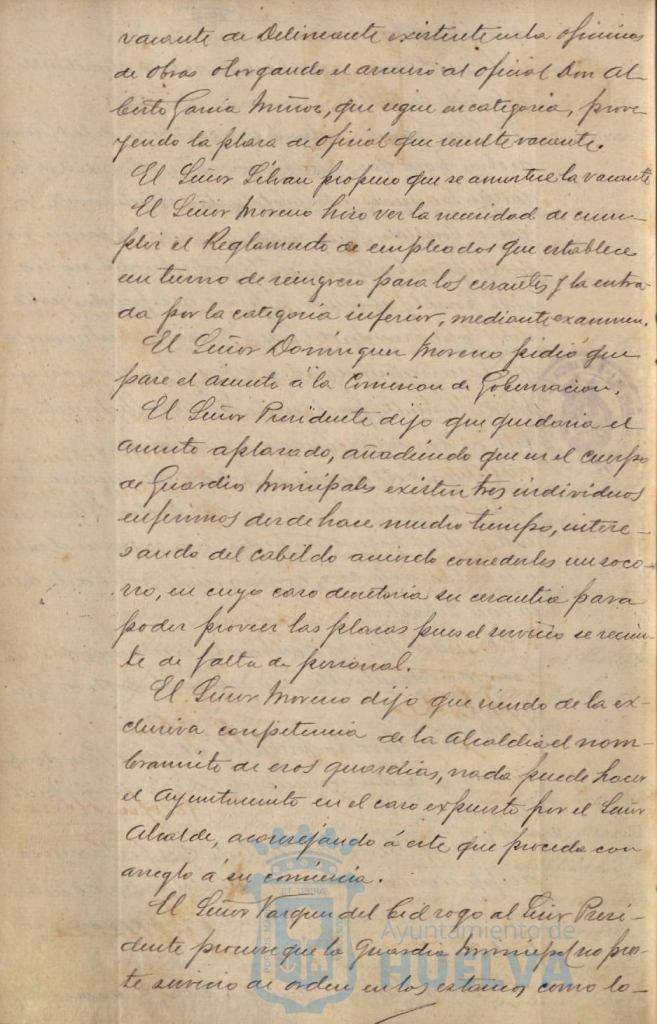 vacante de Delineante existente en la oficinas
de obras otorgando el ascenso al oficial Don Al-
berto Garcia Muñoz, que sigue en categoria, prove-
yendo la plaza de oficial que resulte vacante.
El Señor Silvan propuso que se amortice la vacante
El Señor Moreno hizo ver la necesidad de cum-
plir el Reglamento de empleados que establece
un turno de reingreso para los cesantes y la entra-
da por la categoria inferior, mediante examen.
El Señor Dominguez Moreno pidió que
pase el asunto á la Comision de Gobernacion.
El Señor Presidente dijo que quedaria el
asunto aplazado, añadiendo que en el cuerpo
de Guardias Municipales existen tres individuos
enfermos desde hace mucho tiempo, intere-
sando del cabildo acuerde concederles un soco-
rro, en cuyo caso decretaria su cesantia para
poder proveer las plazas pues el servicio se resien-
te de falta de personal.
El Señor Moreno dijo que siendo de la ex-
clusiva competencia de la Alcaldia el nom-
bramiento de esos guardias, nada puede hacer
el Ayuntamiento en el caso expuesto por el Señor
Alcalde, aconsejando á este que proceda con
arreglo á su conciencia.
El Señor Vazquez del Cid rogo al Señor Presi-
dente procure que la Guardia Municipal no pres-
te servicio de orden en los estancos como lo-
Ayuntamiento de
HUELVA